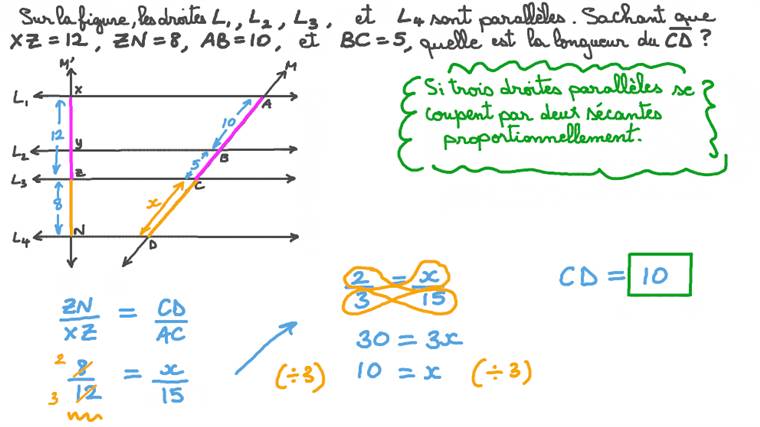 Sur la figure, les droites L₁, L₂, L₃, et L₄ sont parallèles. Sachant que
XZ = 12, ZN = 8, AB = 10, et BC = 5, quelle est la longueur du C̅D̅ ?
Si trois droites parallèles se
coupent par deux sécantes
proportionnellement.
M' M
L₁ X A
12 10
L₂ Y B
5
L₃ Z C
8 x
L₄ N D
ZN/XZ = CD/AC
2 8/12 3 = x/15
2/3 = x/15
30 = 3x
(÷3) 10 = x (÷3)
CD = 10